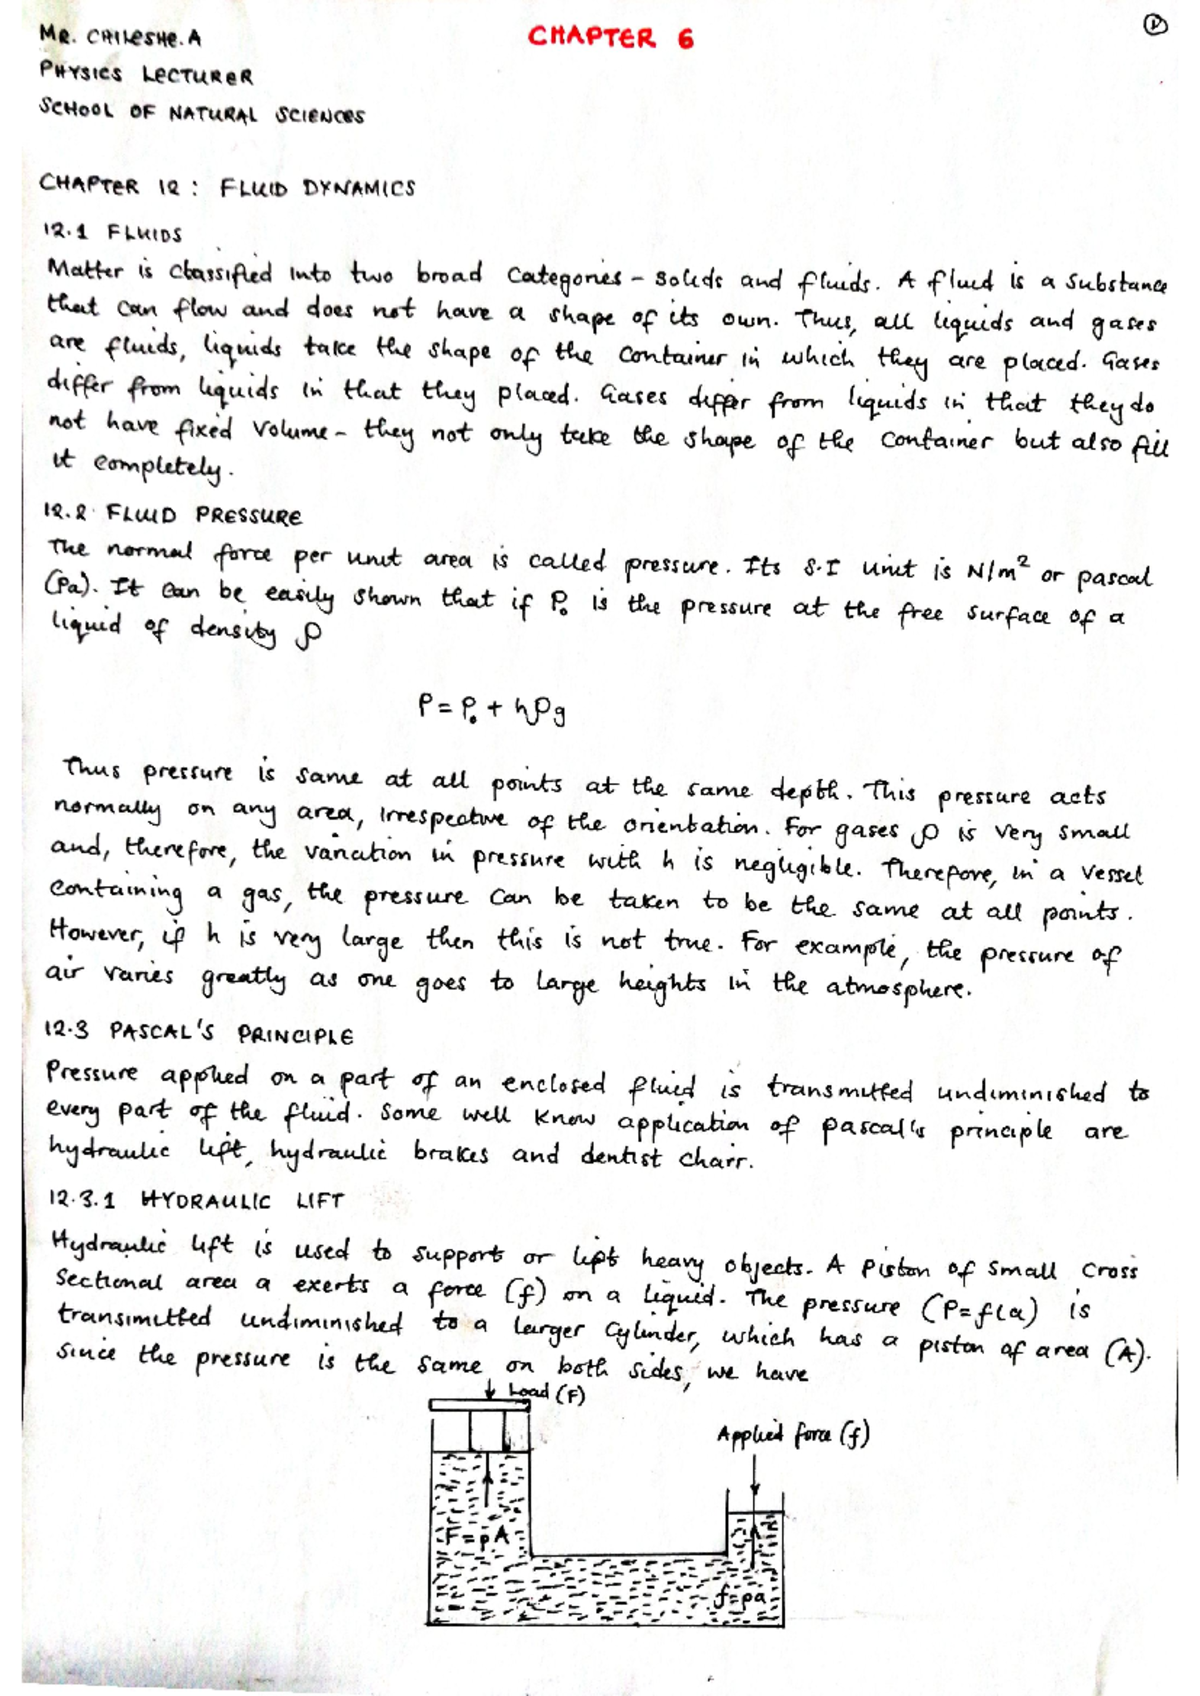 MR. CHILESHE. A
CHAPTER 6
PHYSICS LECTURER
SCHOOL OF NATURAL SCIENCES
CHAPTER 12 : FLUID DYNAMICS
12.1 FLUIDS
Matter is classified into two broad categories - solids and fluids. A fluid is a substance
that can flow and does not have a shape of its own. Thus, all liquids and gases
are fluids, liquids take the shape of the container in which they are placed. Gases
differ from liquids in that they placed. Gases differ from liquids in that they do
not have fixed volume - they not only take the shape of the container but also fill
it completely.
12.2 FLUID PRESSURE
The normal force per unit area is called pressure. Its S.I unit is N/m² or pascal
(Pa). It can be easily shown that if P₀ is the pressure at the free surface of a
liquid of density ρ
P = P₀ + hρg
Thus pressure is same at all points at the same depth. This pressure acts
normally on any area, irrespective of the orientation. For gases ρ is very small
and, therefore, the variation in pressure with h is negligible. Therefore, in a vessel
containing a gas, the pressure can be taken to be the same at all points.
However, if h is very large then this is not true. For example, the pressure of
air varies greatly as one goes to large heights in the atmosphere.
12.3 PASCAL'S PRINCIPLE
Pressure applied on a part of an enclosed fluid is transmitted undiminished to
every part of the fluid. Some well know application of pascal's principle are
hydraulic lift, hydraulic brakes and dentist chair.
12.3.1 HYDRAULIC LIFT
Hydraulic lift is used to support or lift heavy objects. A piston of small cross
sectional area a exerts a force (f) on a liquid. The pressure (P=f/a) is
transimitted undiminished to a larger cylinder, which has a piston of area (A).
Since the pressure is the same on both sides, we have
Load (F)
Applied force (f)
F=pA
f=pa